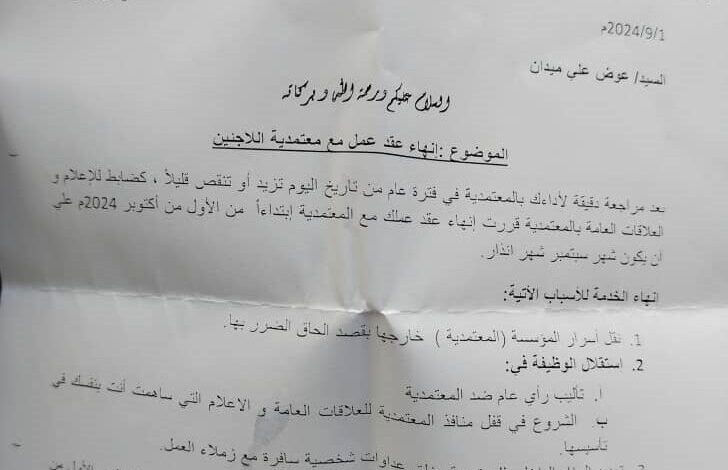 2024/9/1م
السيد/ عوض علي ميدان
السلام عليكم ورحمة الله وبركاته
الموضوع :إنهاء عقد عمل مع معتمدية اللاجئين
بعد مراجعة دقيقة لأداءك بالمعتمدية في فترة عام من تاريخ اليوم تزيد أو تنقص قليلاً ، كضابط للإعلام و
العلاقات العامة بالمعتمدية قررت إنهاء عقد عملك مع المعتمدية إبتداءاً من الأول من أكتوبر 2024م على
ان يكون شهر سبتمبر شهر انذار.
إنهاء الخدمة للأسباب الأتية:
1. نقل أسرار المؤسسة (المعتمدية ) خارجها بقصد الحاق الضرر بها.
2. استقلال الوظيفة في:
أ. تأليب رأي عام ضد المعتمدية
ب. الشروع في قفل منافذ المعتمدية للعلاقات العامة و الاعلام التي ساهمت أنت بنفسك في
تأسيسها.
عداوات شخصية سافرة مع زملاء العمل.
الأول من